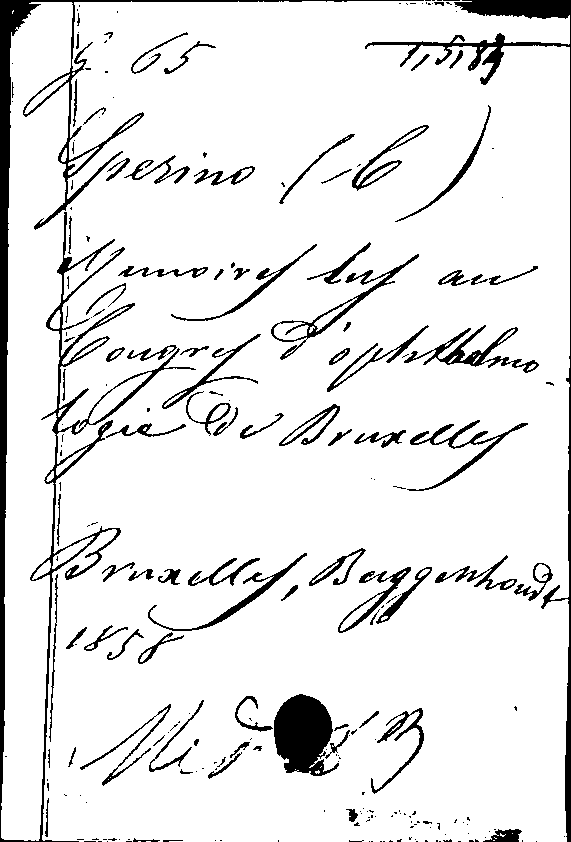 g. 65 1,5,84
Sperino (C)
Mémoires lus au
Congres d'ophthalmo
logie de Bruxelles
Bruxelles, Buggenhoudt
1858